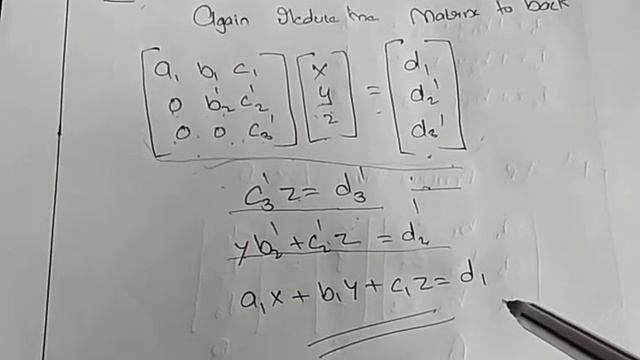 Again Redute the Matrix to back
[a₁ b₁ c₁] [x] = [d₁]
[0 b₂' c₂'] [y] [d₂']
[0 0 c₃'] [z] [d₃']
c₃' z = d₃'
y b₂' + c₂' z = d₂'
a₁x + b₁y + c₁z = d₁